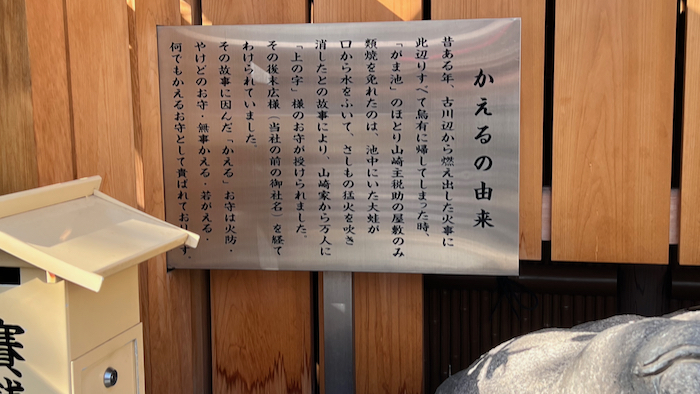 かえるの由来
昔ある年、古川辺から燃え出した火事に
此辺りすべて烏有に帰してしまった時、
「がま池」のほとり山崎主税助の屋敷のみ
類焼を免れたのは、池中にいた大蛙が
口から水をふいて、さしもの猛火を吹き
消したとの故事により、山崎家から万人に
「上の字」様のお守が授けられました。
その後末広様（当社の前の御社名）を経て
わけられていました。
その故事に因んだ「かえる」お守は火防・
やけどのお守・無事かえる・若がえる
何でもかえるお守として貴ばれております。
賽銭